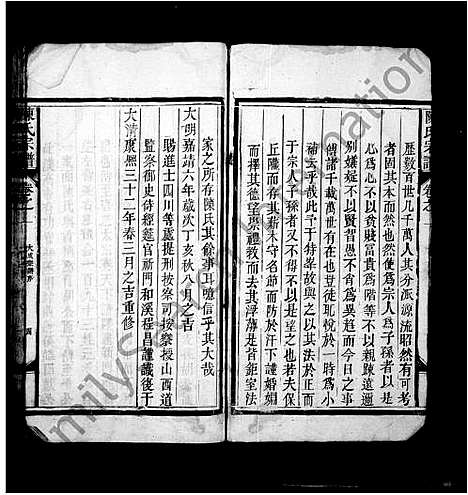 陳氏宗譜 卷之一
歷數百世凡千萬人其分派源流昭然有可考
者因其本而然也然使為宗人為子孫者以是
心為心不以貧賤富貴為階等不以親疎遠邇
別嫌疑不以賢智愚不肖為異趨而今日之事
傳諸千載萬世有在也豈徒現悅於一時為小
補云乎哉此予于特峯故與之以其法於正而
于宗人子孫者又不得不以是望之也若夫保
丘隴而存其薪木守名節而防於汗下謹婚姻
而擇其德望崇禮教而去其浮薄是皆鉅室法
家之所存陳氏其餘事耳噫信乎其大哉
大明嘉靖六年歲次丁亥秋八月之吉
賜進士四川等處提刑按察司按察授山西道
監察御史侍經筵官祈門和溪程昌謹識後于
大清康熙三十二年春三月之吉重修
陳氏宗譜 卷之一